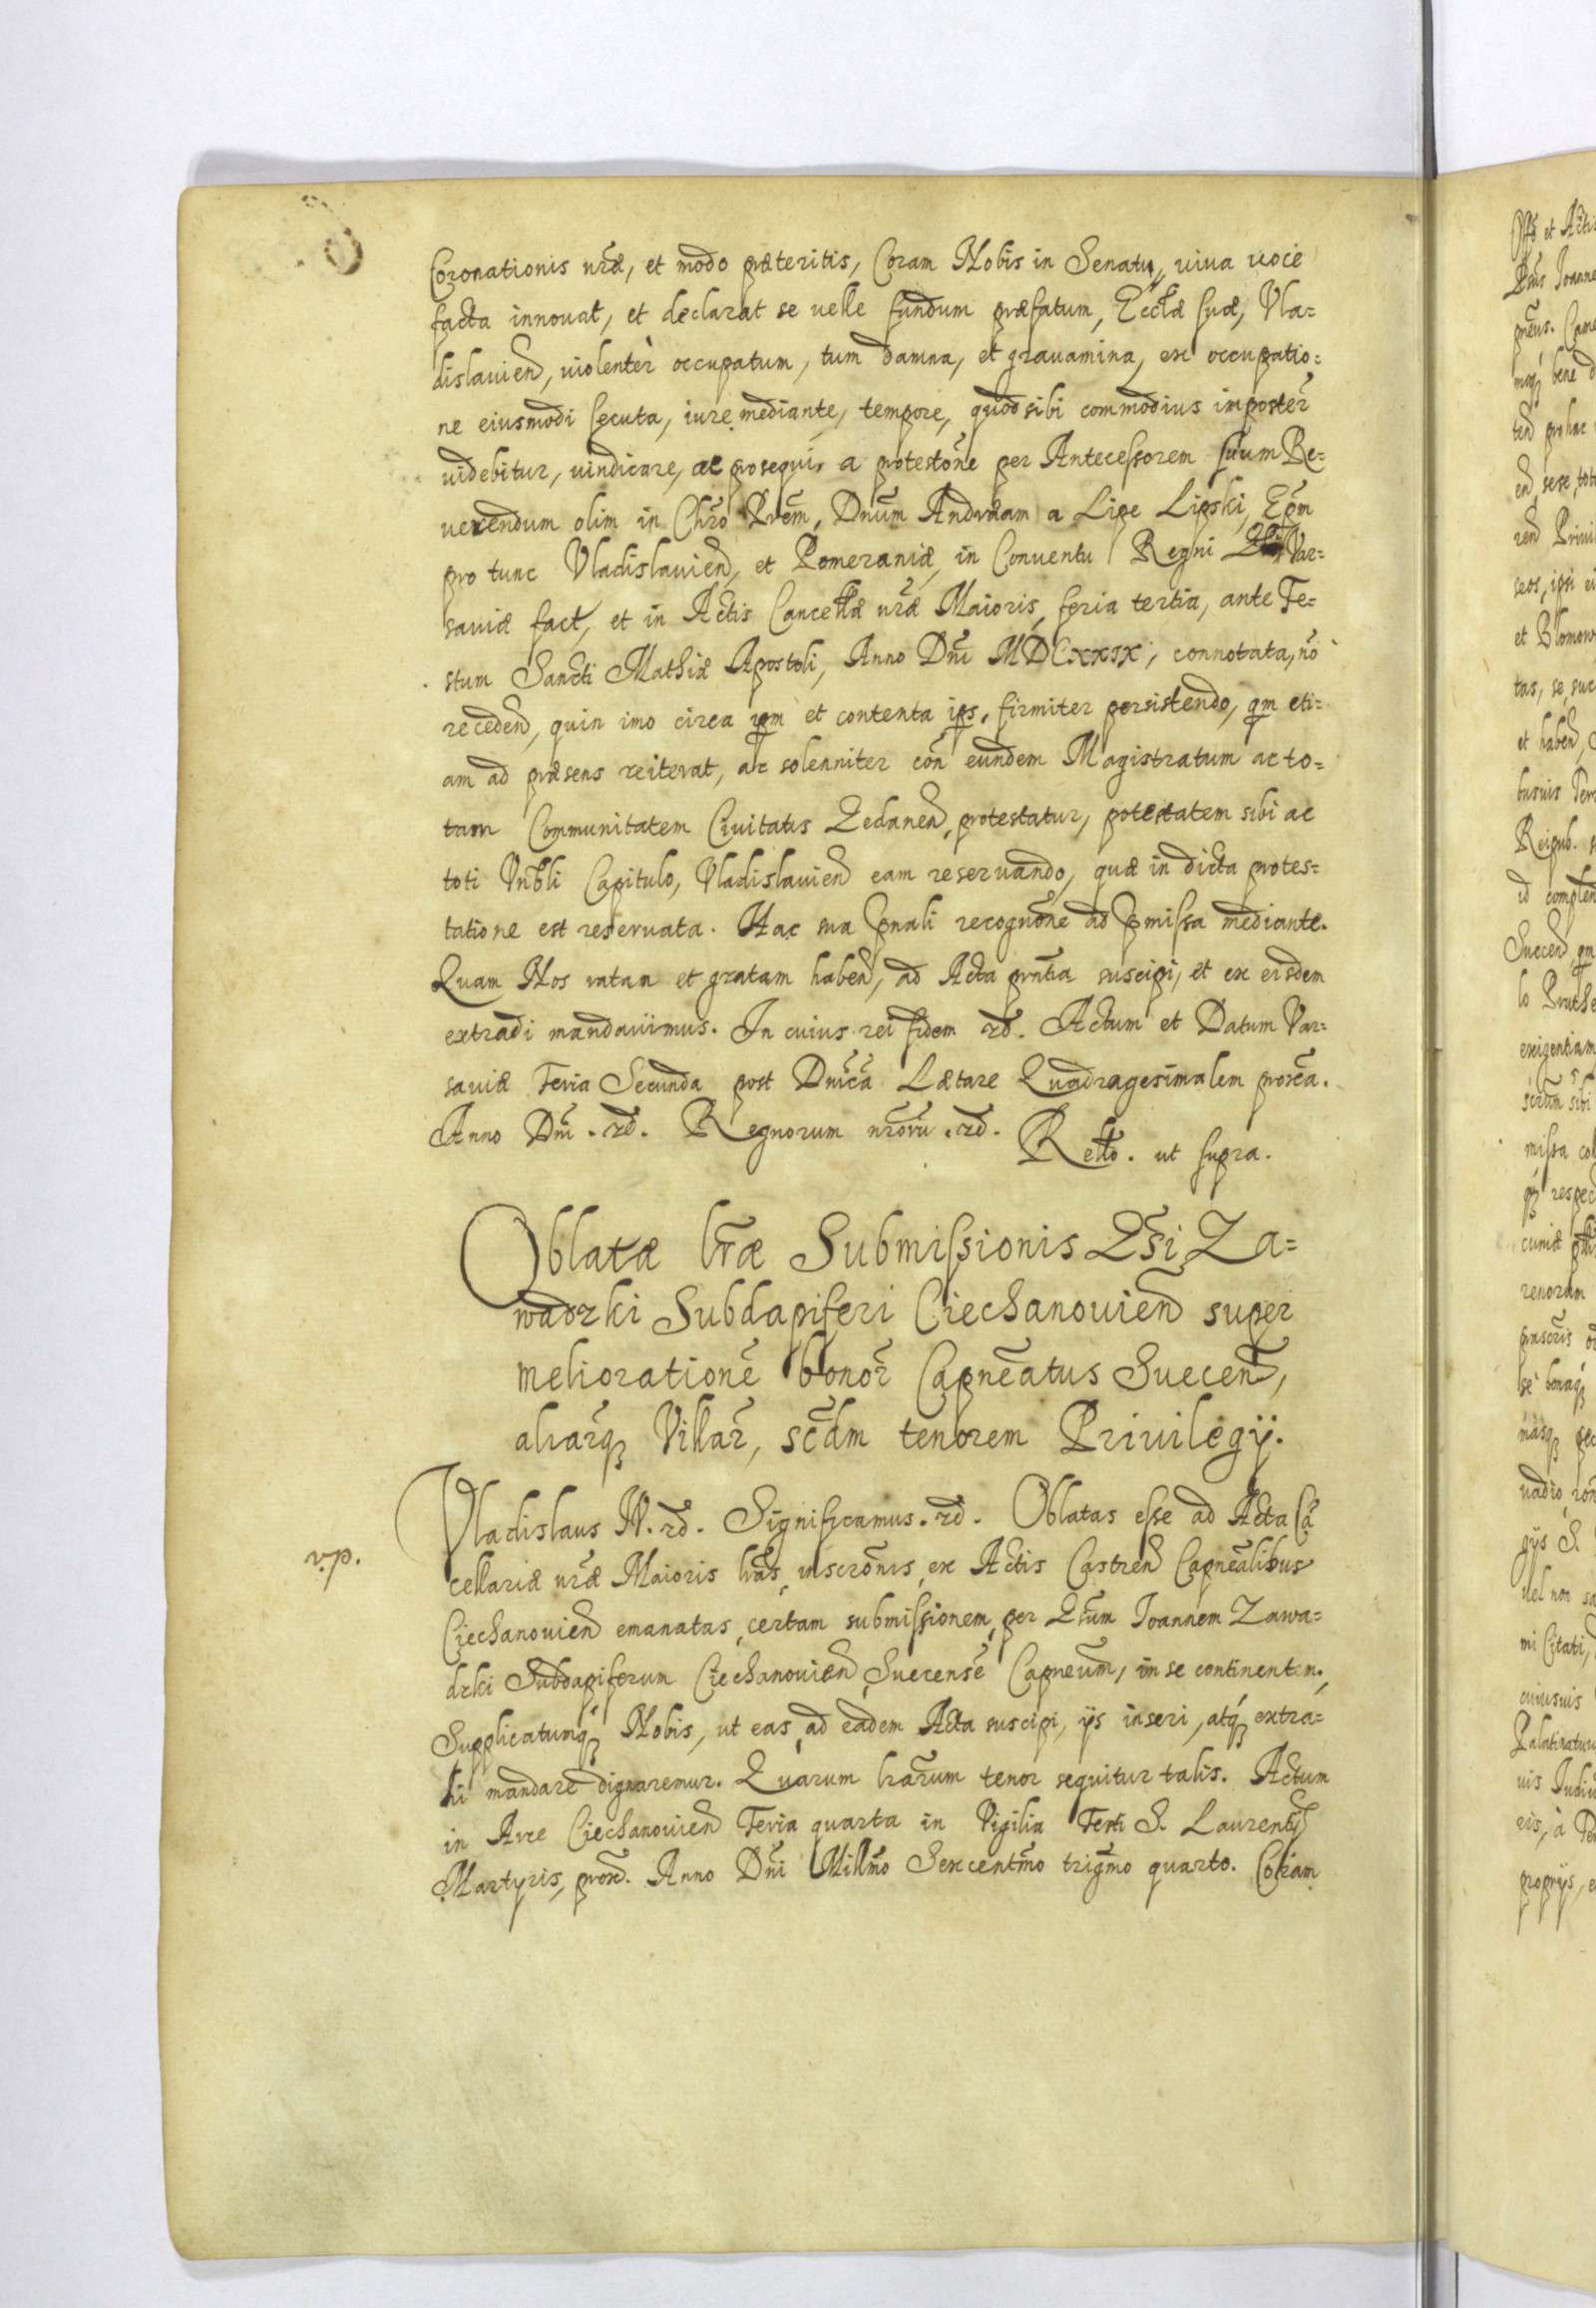 Coronationis nr̃æ, et modo præteritis, Coram Nobis in Senatu, viua uoce
facta innouat, et declarat se uelle fundum præfatum, Eccl̃æ suæ, Vla=
dislauien̄, uiolenter̀ occupatum, tum damna, et grauamina, ex occupatio=
ne eiusmodi secuta, iure mediante, tempore, quod sibi commodius imposter̃
uidebitur, uindicare, ac prosequi, a protestõne per Antecessorem suum Re=
uerendum olim in Chr̃o Prẽm, Dnũm Andræam a Lipe Lipski, Ep̃m
pro tunc Vladislauien̄, et Pomeraniæ, in Conuentu Regni Var=
sauiæ fact, et in Actis Cancell̃æ nr̃æ Maioris, feria tertia, ante Fe=
stum Sancti Mathiæ Apostoli, Anno Dnĩ MDCXXIX, connotata, nõ
receden̄, quin imo circa ip̃m et contenta ip̃s, firmiter persistendo, qm̃ eti=
am ad præsens reiterat, ac solenniter con̄ eundem Magistratum ac to=
tam Communitatem Ciuitatis Gedanen̄, protestatur, potestatem sibi ac
toti Vnb̃li Capitulo, Vladislauien̄ eam reseruando, quæ in dicta protes=
tatione est reseruata. Hac sua p̃nali recognõne ad p̃missa mediante.
Quam Nos ratam et gratam haben̄, ad Acta prñtia suscipi, et ex eisdem
extradi mandauimus. In cuius rei fidem ꝛc̃. Actum et Datum Var=
sauiæ Feria Secunda post Dnĩca Lætare Quadragesimalem prox̃a.
Anno Dnĩ .ꝛc̃. Regnorum nr̃oru̅ .ꝛc̃.
Rel̃to. ut supra.
Oblatæ lr̃æ Submissionis Gs̃i Za=
wadzki Subdapiferi Ciechanouien̄ super
melioratione̅ bonor̃ Capnẽatus Suecen̄,
aliarq̃ȝ Villar̃, scd̃m tenorem Priuilegij.
Vladislaus IV. ꝛc̃. Significamus .ꝛc̃. Oblatas esse ad Acta Cã
v.p.
cellariæ nr̃æ Maioris lr̃as, inscrõnis, ex Actis Castren̄ Capneãlibus
Ciechanouien̄ emanatas, certam submissionem, per Gs̃um Ioannem Zawa=
dzki Subdapiferum Ciechanouien̄, Suecense̅ Capneũm, in se continenten.,
Supplicatumq́ȝ Nobis, ut eas, ad eadem Acta suscipi, ijs inseri, atq́ȝ extra=
di mandare dignaremur. Quarum lr̃arum tenor sequitur talis. Actum
in Arce Ciechanouien̄ Feria quarta in Vigilia Festi S. Laurentij
Martyris, prox̃. Anno Dnĩ Mill̃mo Sexcentm̃o trigm̃o quarto. Coram